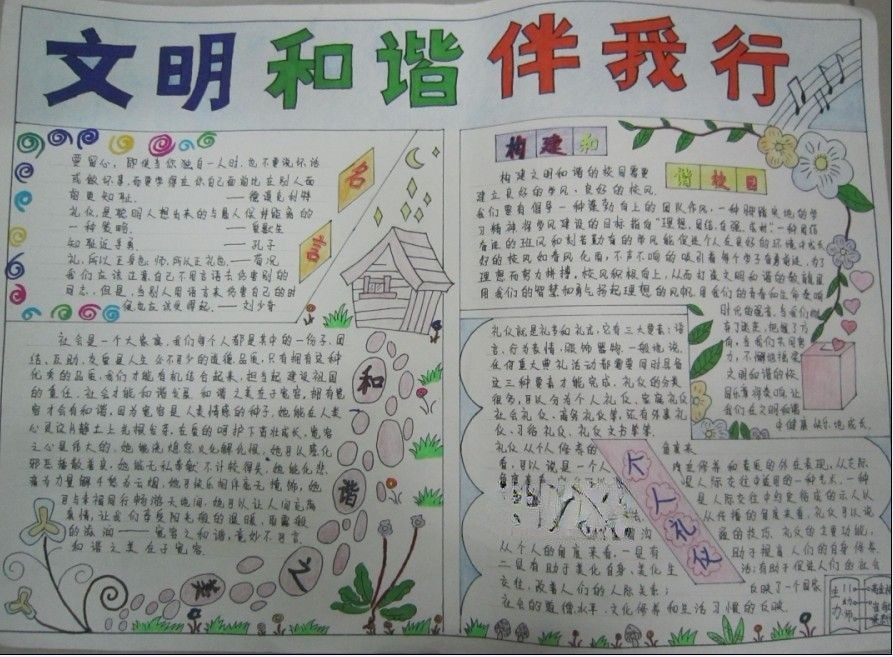 文明和谐伴我行
名言
要留心，即使当你独自一人时，也不要说坏话
或做坏事，而要学得在你自己面前比在别人面
前更知耻。——德谟克利特
礼仪是聪明人想出来的与愚人保持距离的
一种策略。——爱默生
知耻近乎勇。——孔子
礼，所以正身也；师，所以正礼也。——荀况
我们应该注意自己不用言语去伤害别的
同志，但是，当别人用语言来伤害自己的时
候，也应该受得起。——刘少奇
社会是一个大家庭，我们每个人都是其中的一份子，团
结、互助、友爱是人生必不可少的道德品质，只有拥有这种
优秀的品质，我们才能有机结合起来，担当起建设祖国
的重任，社会才能和谐发展。和谐之美在于宽容，拥有宽
容才会有和谐，因为宽容是人类情感的种子，她能在人类
心灵这片静土上光根发芽，在爱的呵护下茁壮成长，宽容
之心是伟大的，她能洗熄怒火化解仇恨，她可以感化
邪恶播散善良，她能无私奉献不计较得失，她能化悲
痛为力量
可与幸福同行畅游天地间，她可以让人间充满
真情，让我们享受阳光般的温暖，雨露般
的滋润——宽容之和谐，意妙不可言
和谐之美在于宽容
和谐之美
构建和
谐校园
构建文明和谐的校园需要
建立良好的学风、良好的校风，
我们要有倡导一种蓬勃向上的团队作风，一种脚踏实地的学
习精神将学风建设的目标指向"理想，自信，自强，成材"，一种团结
奋进的班风和刻苦勤奋的学风能促进个人在良好的环境中成长
好的校风如春风化雨，不声不响的吸引着每个学子奋勇前进，为了
理想而努力拼搏，校风积极向上，从而打造文明和谐的教育篇
用我们的智慧和勇气扬起理想的风帆，用我们的青春和生命奏响
时代的强音，当我们拥
有了
面，当我们共同努
力，不懈地接受
文明和谐的校
园乐章将奏响，让
我们在文明和谐
中健康快乐地成长。
个人礼仪
礼仪就是礼节和礼式，它有三大要素：语
言，行为表情，服饰器物。一般地说，
任何重大典礼活动都需要同时具备
这三种要素才能完成。礼仪的分类
很多，可以分为个人礼仪、家庭礼仪
社会礼仪、商务礼仪等，还有体事礼
仪、习俗礼仪、礼仪文书等等。
礼仪从个人修养的角度来
看，可以说是一个人内在修养和素质的外在表现，从交际
是人际交往中适用的一种艺术，一种
是人际交往中约定俗成的示人以
从传播的角度来看，礼仪可以说
通的技巧，礼仪的主要功能，
从个人的角度来看，一是有助于提高人们的自身修养，
二是有助于美化自身，美化生活；有助于促进人们的社会
交往，改善人们的人际关系；
反映了一个国家
社会的道德水平、文化修养和生活习惯的反映。